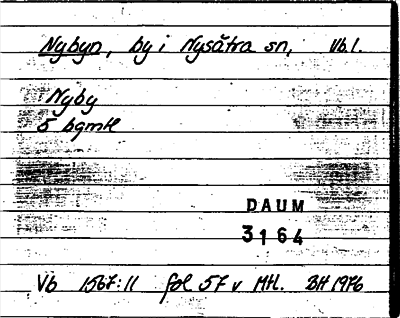 Nybyn, by i Nysätra sn, Vb.l.
Nyby
5 bgmtl
DAUM
3164
Vb 1567:11 fol 57 v Mtl. BH 1976